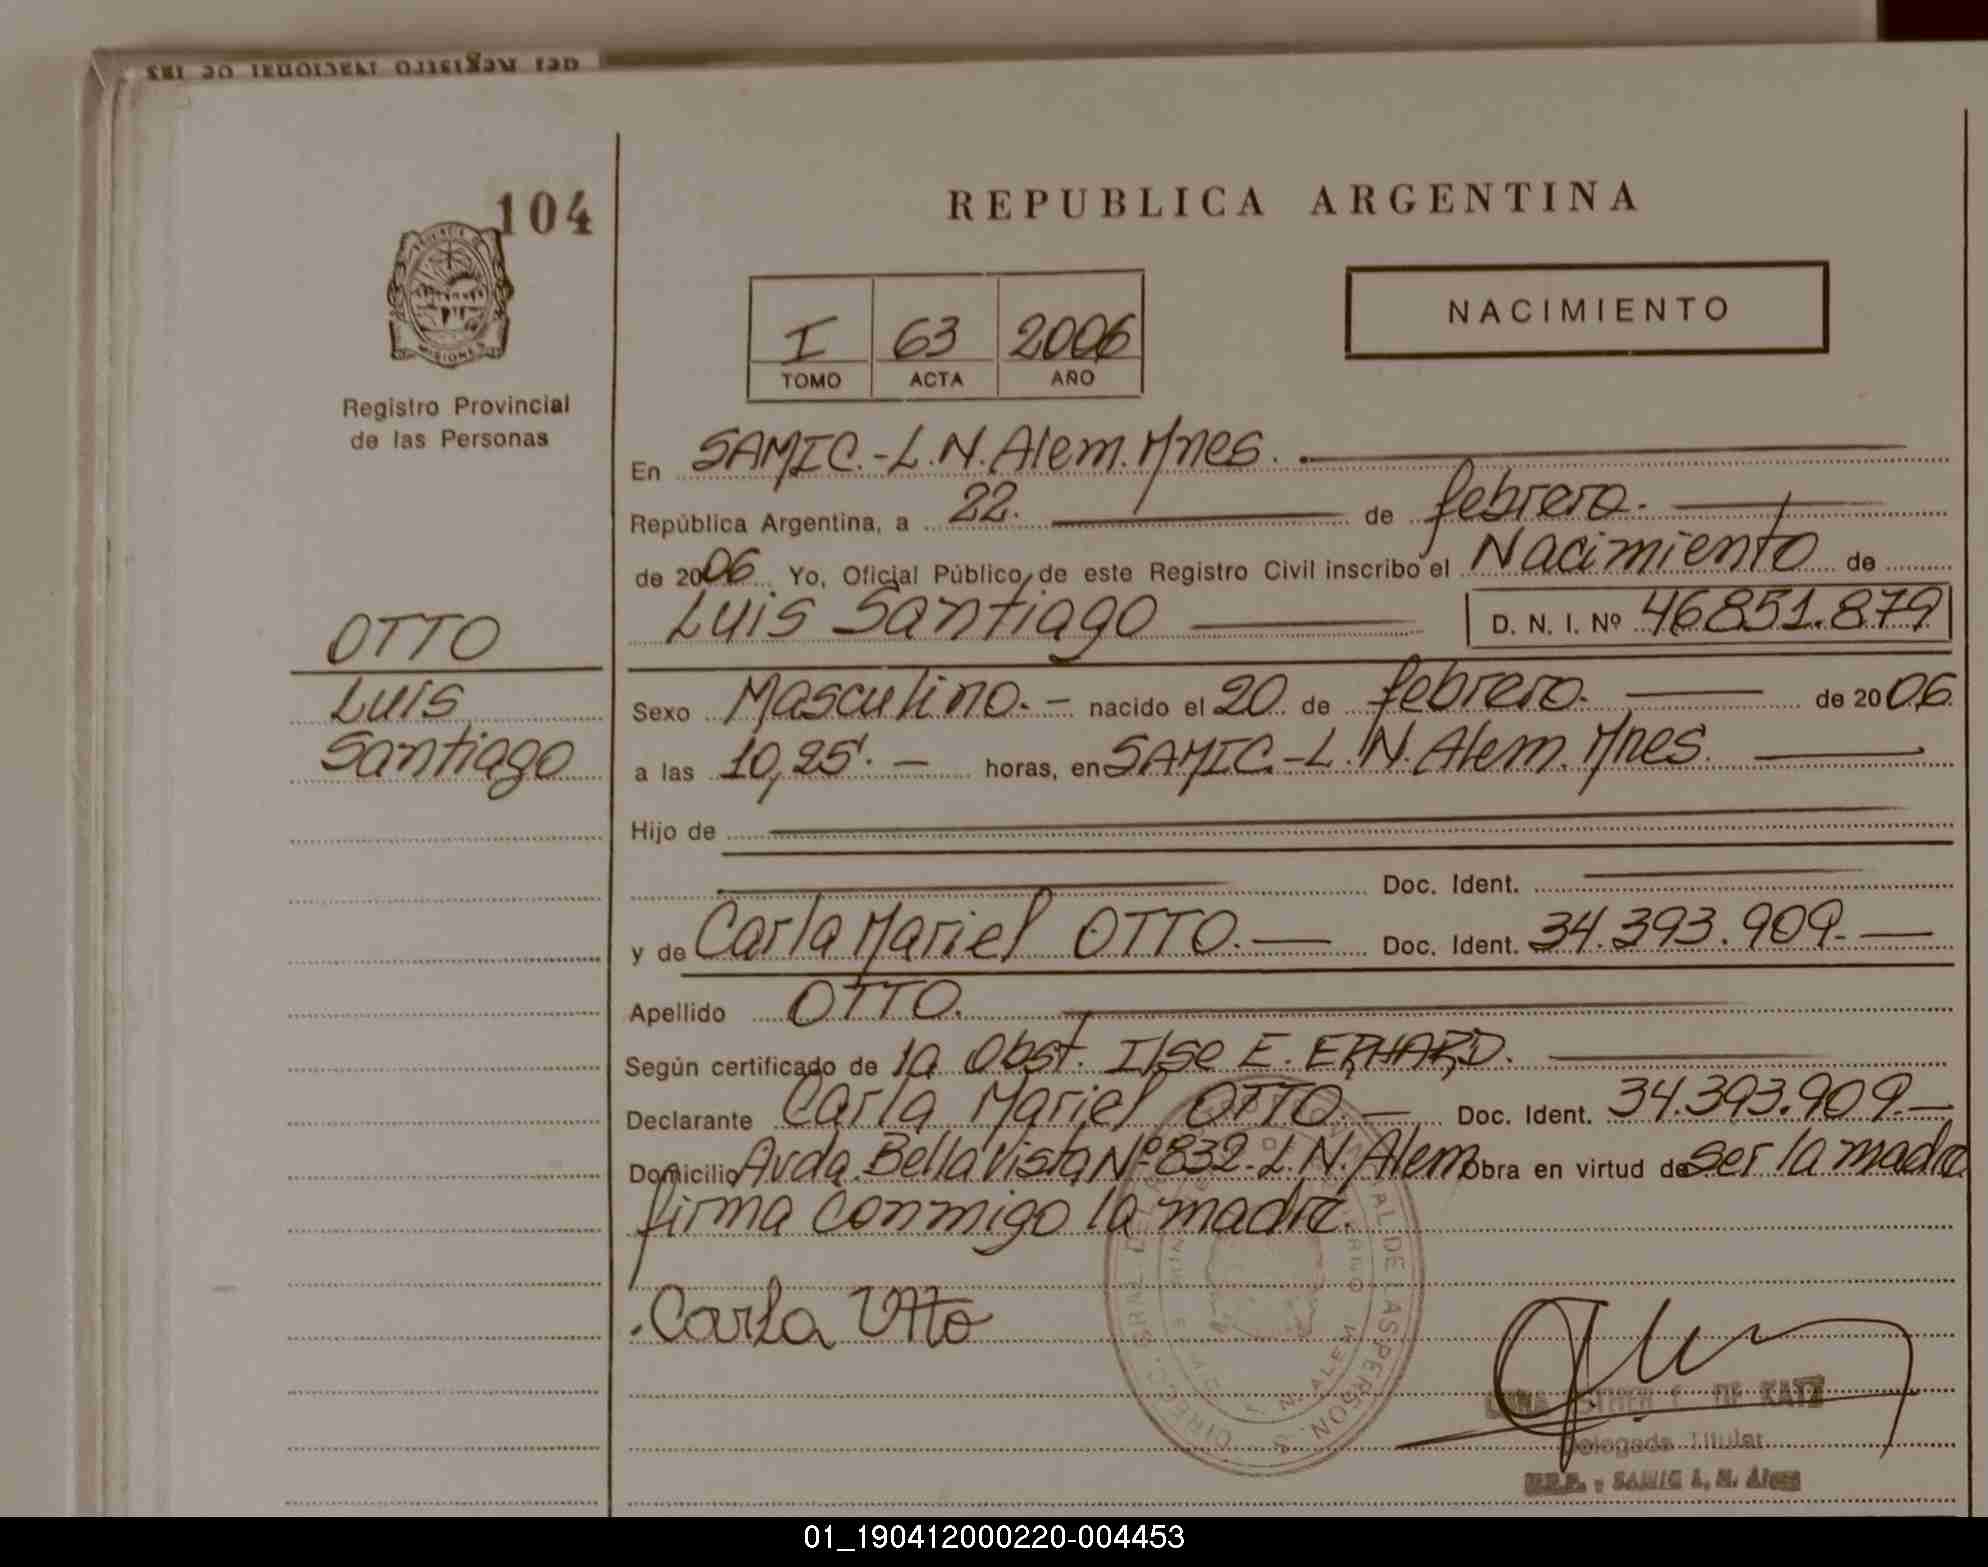 104
MISIONES
Registro Provincial
de las Personas
OTTO
Luis
Santiago
REPUBLICA ARGENTINA
I 63 2006
TOMO ACTA AÑO
NACIMIENTO
En SAMIC.-L.N.Alem.Mnes.
República Argentina, a 22. de febrero.
de 2006 Yo, Oficial Público de este Registro Civil inscribo el Nacimiento de
Luis Santiago D. N. I. Nº 46851.879
Sexo Masculino.- nacido el 20 de febrero. de 2006
a las 10,25'.- horas, en SAMIC.-L.N.Alem.Mnes.
Hijo de
Doc. Ident.
y de Carla Mariel OTTO.- Doc. Ident. 34.393.909.-
Apellido OTTO.
Según certificado de la Obst. Ilse E. ERHARD.
Declarante Carla Mariel OTTO.- Doc. Ident. 34.393.909.-
Domicilio Avda. Bella Vista Nº 832-L.N.Alem Obra en virtud de ser la madre
firma conmigo la madre.
Carla Otto
DE KATZ
Delegada Titular
SAMIC L. N. Alem
01_190412000220-004453